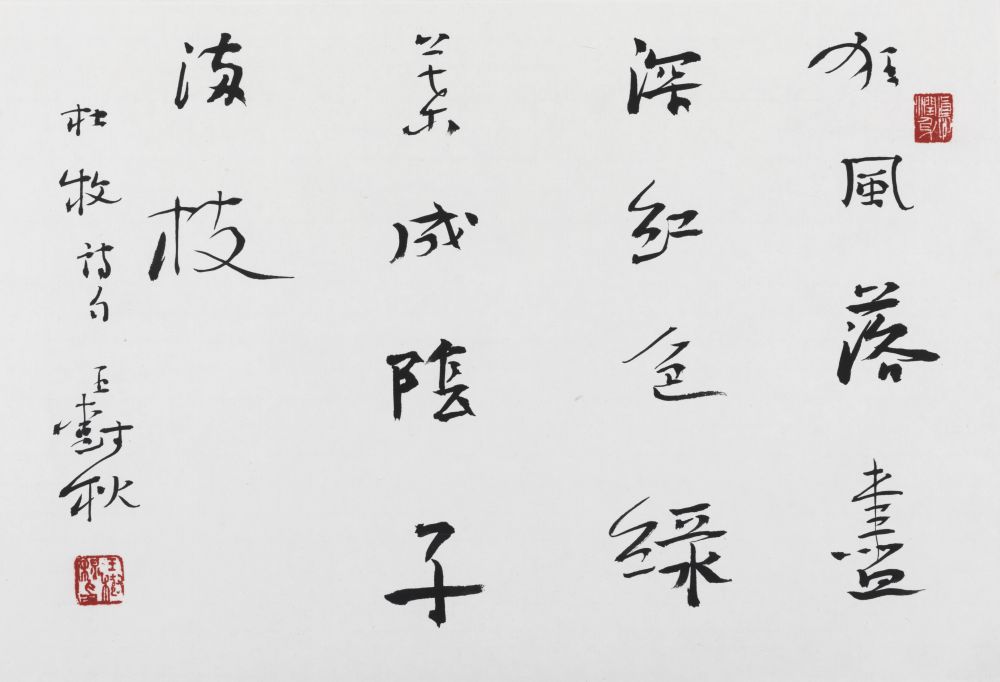 狂風落盡
深紅色綠
葉成陰子
滿枝
杜牧詩句 王樹秋